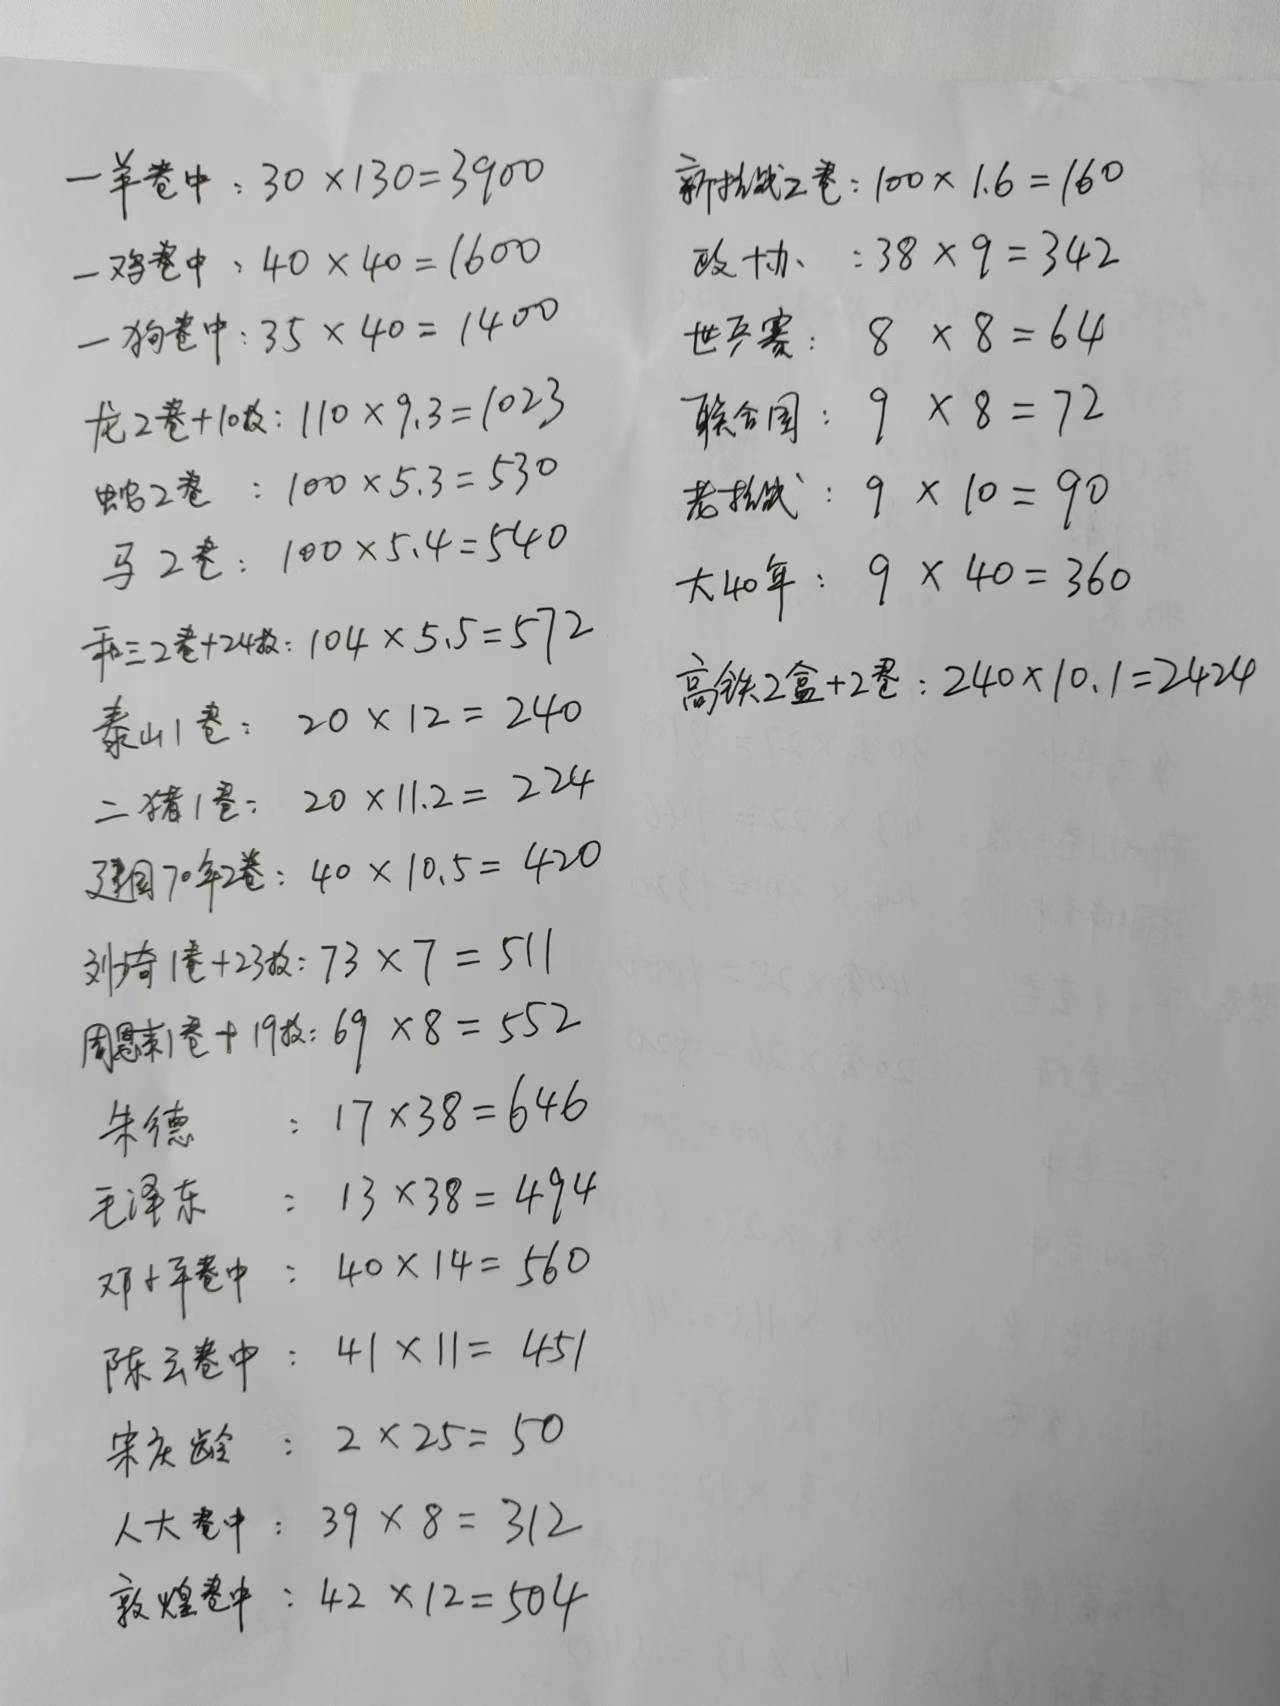 一羊卷中：30×130=3900
一鸡卷中：40×40=1600
一狗卷中：35×40=1400
龙2卷+10枚：110×9.3=1023
蛇2卷：100×5.3=530
马2卷：100×5.4=540
和三2卷+24枚：104×5.5=572
泰山1卷：20×12=240
二猪1卷：20×11.2=224
建国70年2卷：40×10.5=420
刘少奇1卷+23枚：73×7=511
周恩来1卷+19枚：69×8=552
朱德：17×38=646
毛泽东：13×38=494
邓小平卷中：40×14=560
陈云卷中：41×11=451
宋庆龄：2×25=50
人大卷中：39×8=312
敦煌卷中：42×12=504
新抗战2卷：100×1.6=160
政协：38×9=342
世乒赛：8×8=64
联合国：9×8=72
老抗战：9×10=90
大40年：9×40=360
高铁2盒+2卷：240×10.1=2424